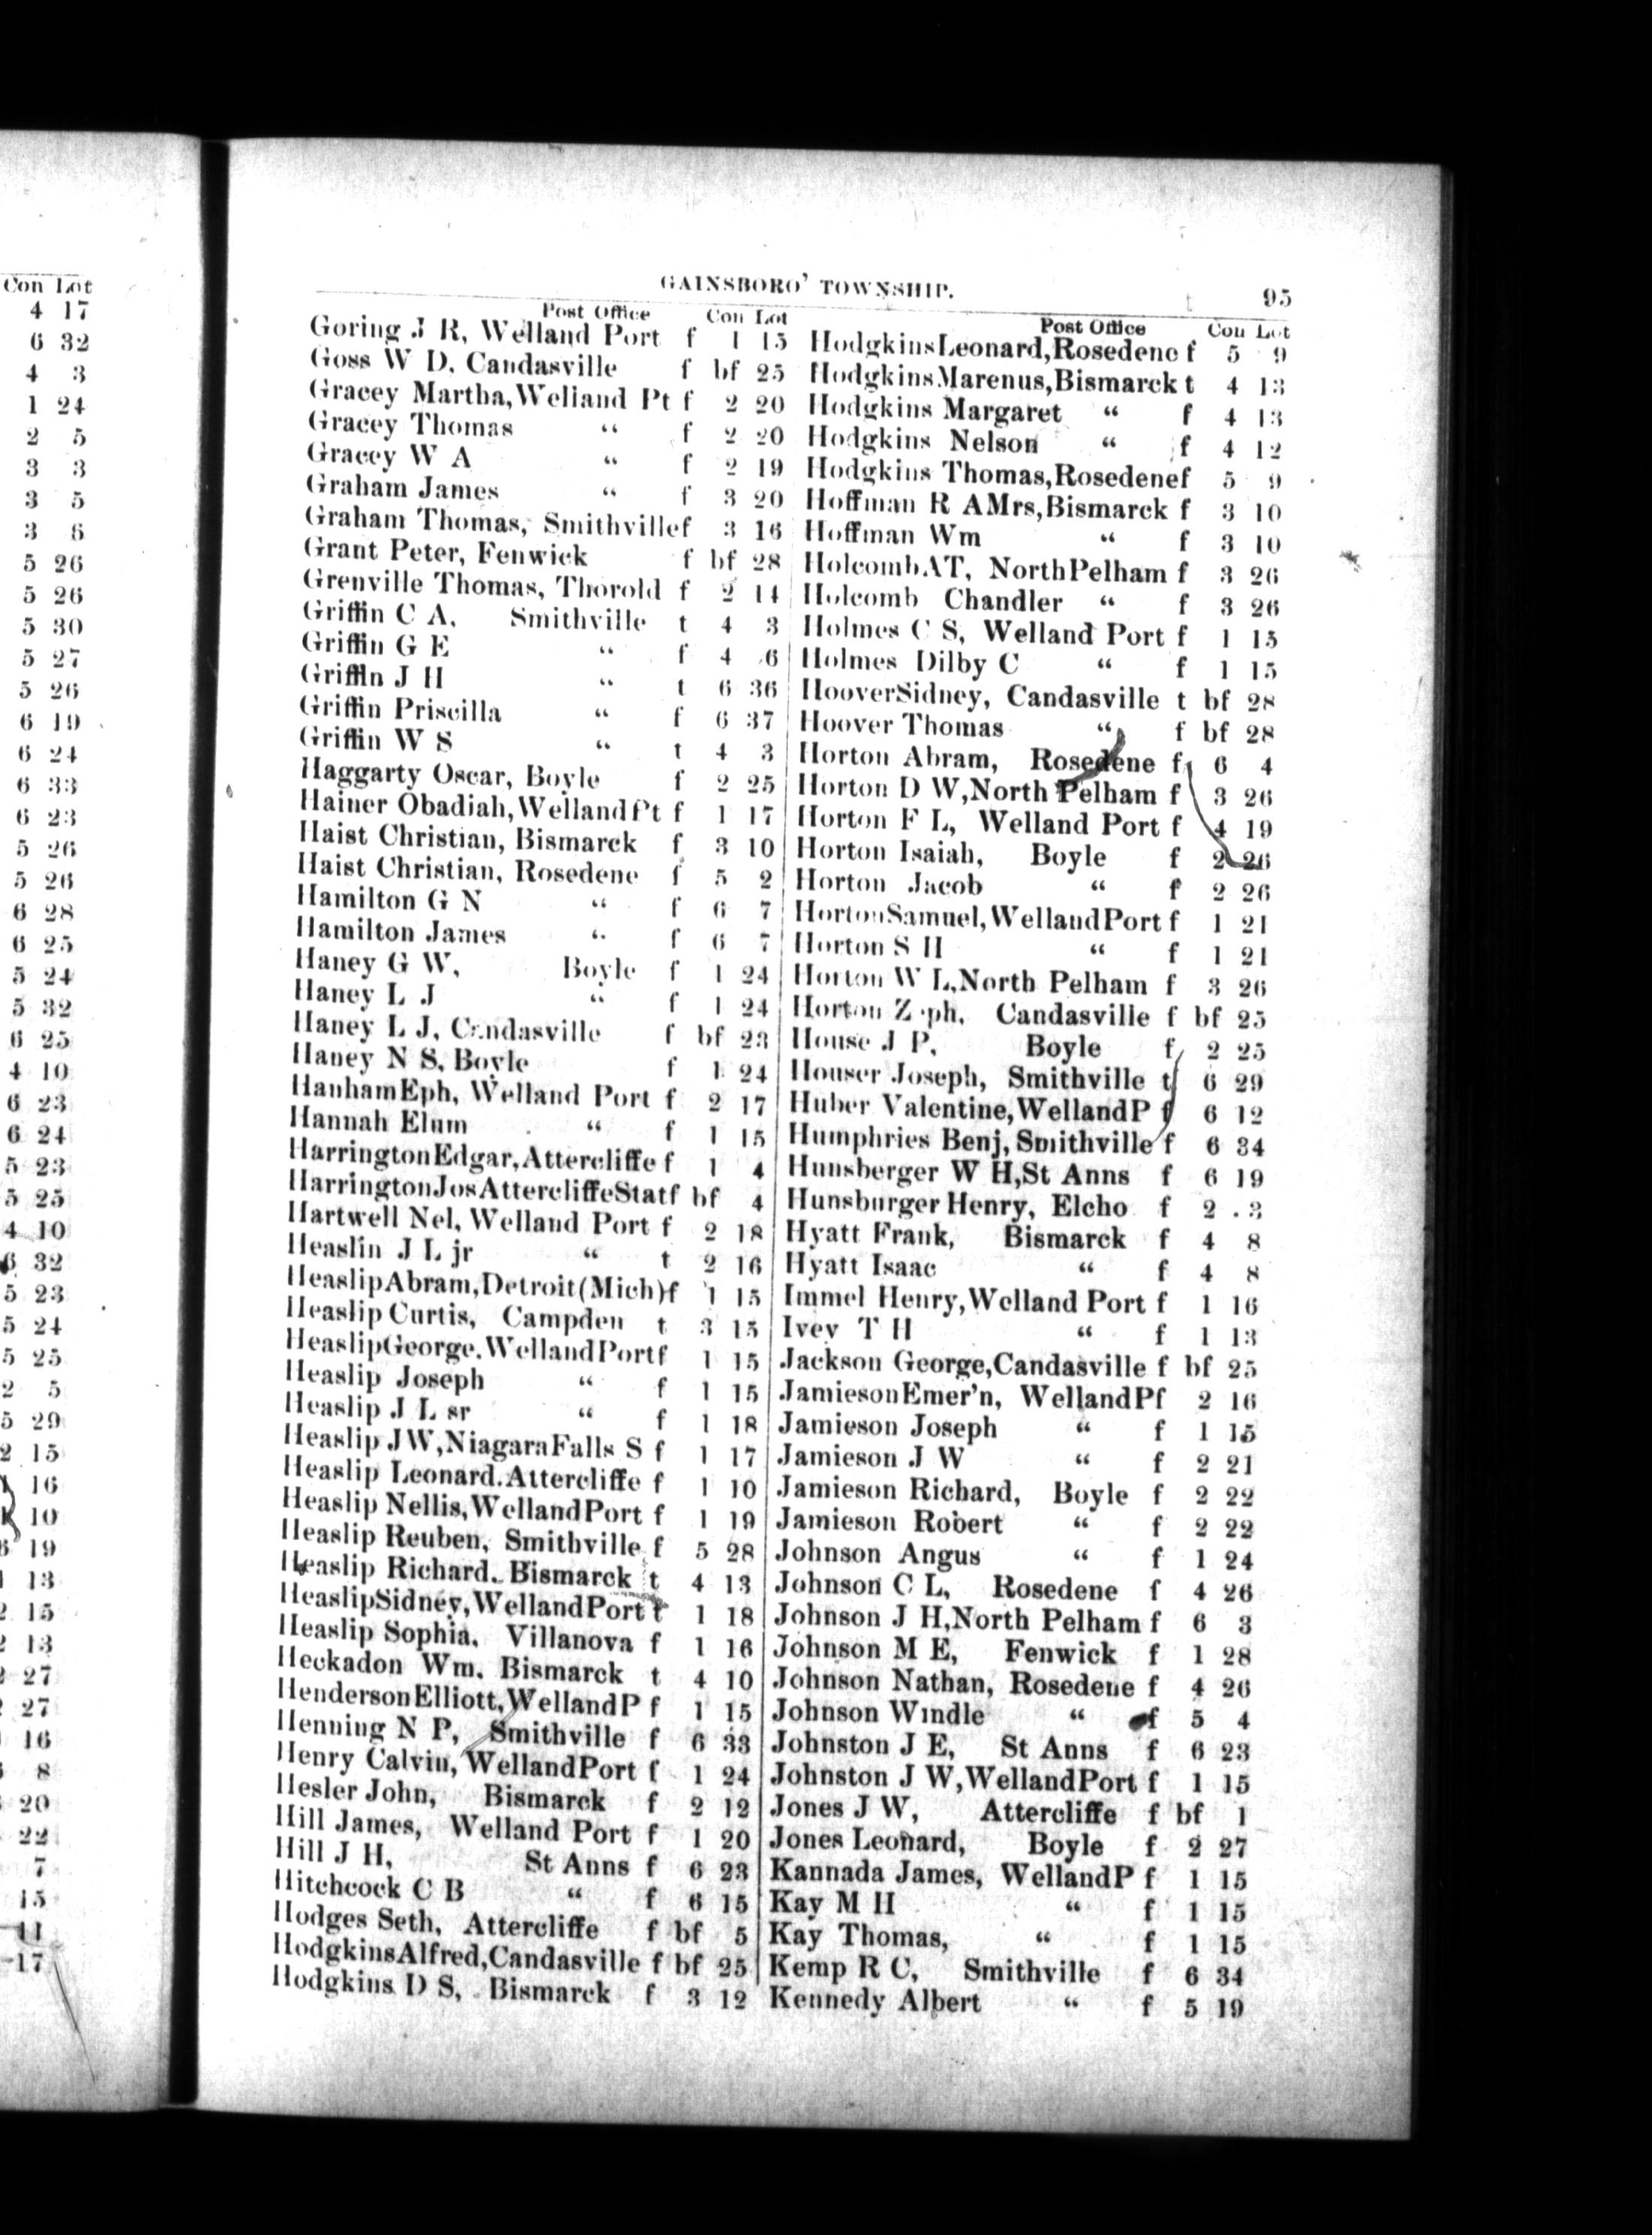 Con Lot
4 17
6 32
4 3
1 24
2 5
3 3
3 5
3 6
5 26
5 26
5 30
5 27
5 26
6 19
6 24
6 33
6 23
5 26
5 26
6 28
6 25
5 24
5 32
6 25
4 10
6 23
6 24
5 23
5 25
4 10
6 32
5 23
5 24
5 25
2 5
5 29
2 15
16
10
19
13
15
13
27
27
16
8
20
22
7
15
11
17
GAINSBORO' TOWNSHIP. 95
Post Office Con Lot
Goring J R, Welland Port f 1 15
Goss W D, Candasville f bf 25
Gracey Martha, Welland Pt f 2 20
Gracey Thomas “ f 2 20
Gracey W A “ f 2 19
Graham James “ f 3 20
Graham Thomas, Smithville f 3 16
Grant Peter, Fenwick f bf 28
Grenville Thomas, Thorold f 2 14
Griffin C A, Smithville t 4 3
Griffin G E “ f 4 6
Griffin J H “ t 6 36
Griffin Priscilla “ f 6 37
Griffin W S “ t 4 3
Haggarty Oscar, Boyle f 2 25
Hainer Obadiah, Welland Pt f 1 17
Haist Christian, Bismarck f 3 10
Haist Christian, Rosedene f 5 2
Hamilton G N “ f 6 7
Hamilton James “ f 6 7
Haney G W, Boyle f 1 24
Haney L J “ f 1 24
Haney L J, Candasville f bf 23
Haney N S, Boyle f 1 24
Hanham Eph, Welland Port f 2 17
Hannah Elum “ f 1 15
Harrington Edgar, Attercliffe f 1 4
Harrington Jos Attercliffe Stat f bf 4
Hartwell Nel, Welland Port f 2 18
Heaslin J L jr “ t 2 16
Heaslip Abram, Detroit (Mich) f 1 15
Heaslip Curtis, Campden t 3 15
Heaslip George, Welland Port f 1 15
Heaslip Joseph “ f 1 15
Heaslip J L sr “ f 1 18
Heaslip J W, Niagara Falls S f 1 17
Heaslip Leonard. Attercliffe f 1 10
Heaslip Nellis, Welland Port f 1 19
Heaslip Reuben, Smithville f 5 28
Heaslip Richard. Bismarck t 4 13
Heaslip Sidney, Welland Port t 1 18
Heaslip Sophia, Villanova f 1 16
Heckadon Wm. Bismarck t 4 10
Henderson Elliott, Welland P f 1 15
Henning N P, Smithville f 6 33
Henry Calvin, Welland Port f 1 24
Hesler John, Bismarck f 2 12
Hill James, Welland Port f 1 20
Hill J H, St Anns f 6 23
Hitchcock C B “ f 6 15
Hodges Seth, Attercliffe f bf 5
Hodgkins Alfred, Candasville f bf 25
Hodgkins D S, Bismarck f 3 12
Post Office Con Lot
Hodgkins Leonard, Rosedene f 5 9
Hodgkins Marenus, Bismarck t 4 13
Hodgkins Margaret “ f 4 13
Hodgkins Nelson “ f 4 12
Hodgkins Thomas, Rosedene f 5 9
Hoffman R A Mrs, Bismarck f 3 10
Hoffman Wm “ f 3 10
Holcomb A T, North Pelham f 3 26
Holcomb Chandler “ f 3 26
Holmes C S, Welland Port f 1 15
Holmes Dilby C “ f 1 15
Hoover Sidney, Candasville t bf 28
Hoover Thomas “ f bf 28
Horton Abram, Rosedene f 6 4
Horton D W, North Pelham f 3 26
Horton F L, Welland Port f 4 19
Horton Isaiah, Boyle f 2 26
Horton Jacob “ f 2 26
Horton Samuel, Welland Port f 1 21
Horton S H “ f 1 21
Horton W L, North Pelham f 3 26
Horton Zeph, Candasville f bf 25
House J P, Boyle f 2 25
Houser Joseph, Smithville t 6 29
Huber Valentine, Welland P f 6 12
Humphries Benj, Smithville f 6 34
Hunsberger W H, St Anns f 6 19
Hunsburger Henry, Elcho f 2 3
Hyatt Frank, Bismarck f 4 8
Hyatt Isaac “ f 4 8
Immel Henry, Welland Port f 1 16
Ivey T H “ f 1 13
Jackson George, Candasville f bf 25
Jamieson Emer'n, Welland P f 2 16
Jamieson Joseph “ f 1 15
Jamieson J W “ f 2 21
Jamieson Richard, Boyle f 2 22
Jamieson Robert “ f 2 22
Johnson Angus “ f 1 24
Johnson C L, Rosedene f 4 26
Johnson J H, North Pelham f 6 3
Johnson M E, Fenwick f 1 28
Johnson Nathan, Rosedene f 4 26
Johnson Windle “ f 5 4
Johnston J E, St Anns f 6 23
Johnston J W, Welland Port f 1 15
Jones J W, Attercliffe f bf 1
Jones Leonard, Boyle f 2 27
Kannada James, Welland P f 1 15
Kay M H “ f 1 15
Kay Thomas, “ f 1 15
Kemp R C, Smithville f 6 34
Kennedy Albert “ f 5 19